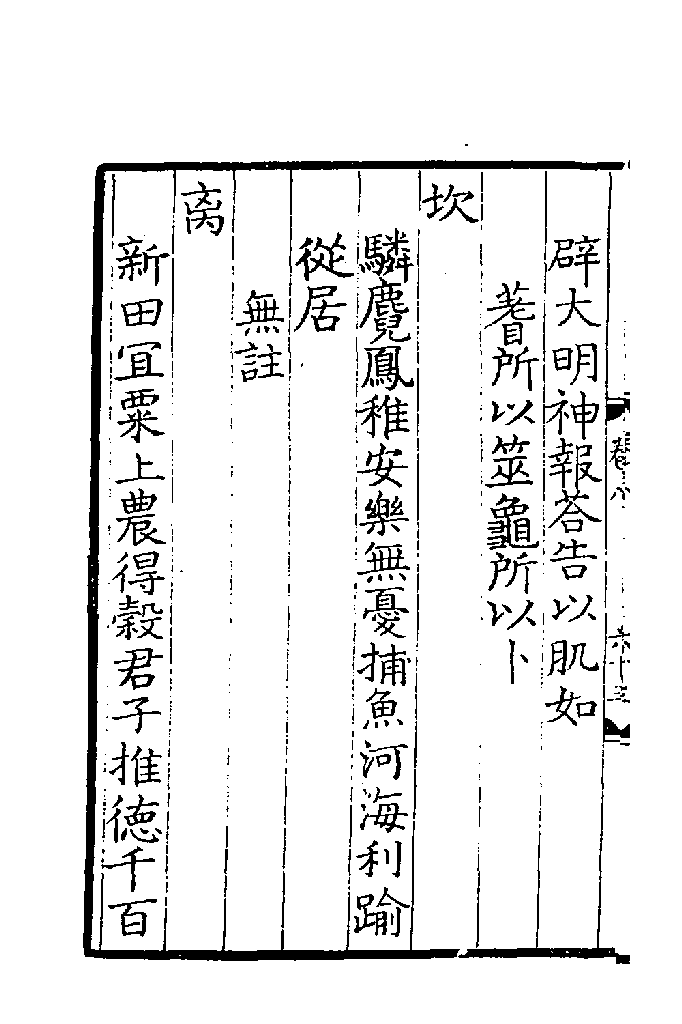 辟大明神報荅告以肌如
蓍所以筮龜所以卜
坎
驎麑鳳稚安樂無憂捕魚河海利踰
從居
無註
离
新田冝粟上農得榖君子推德千百